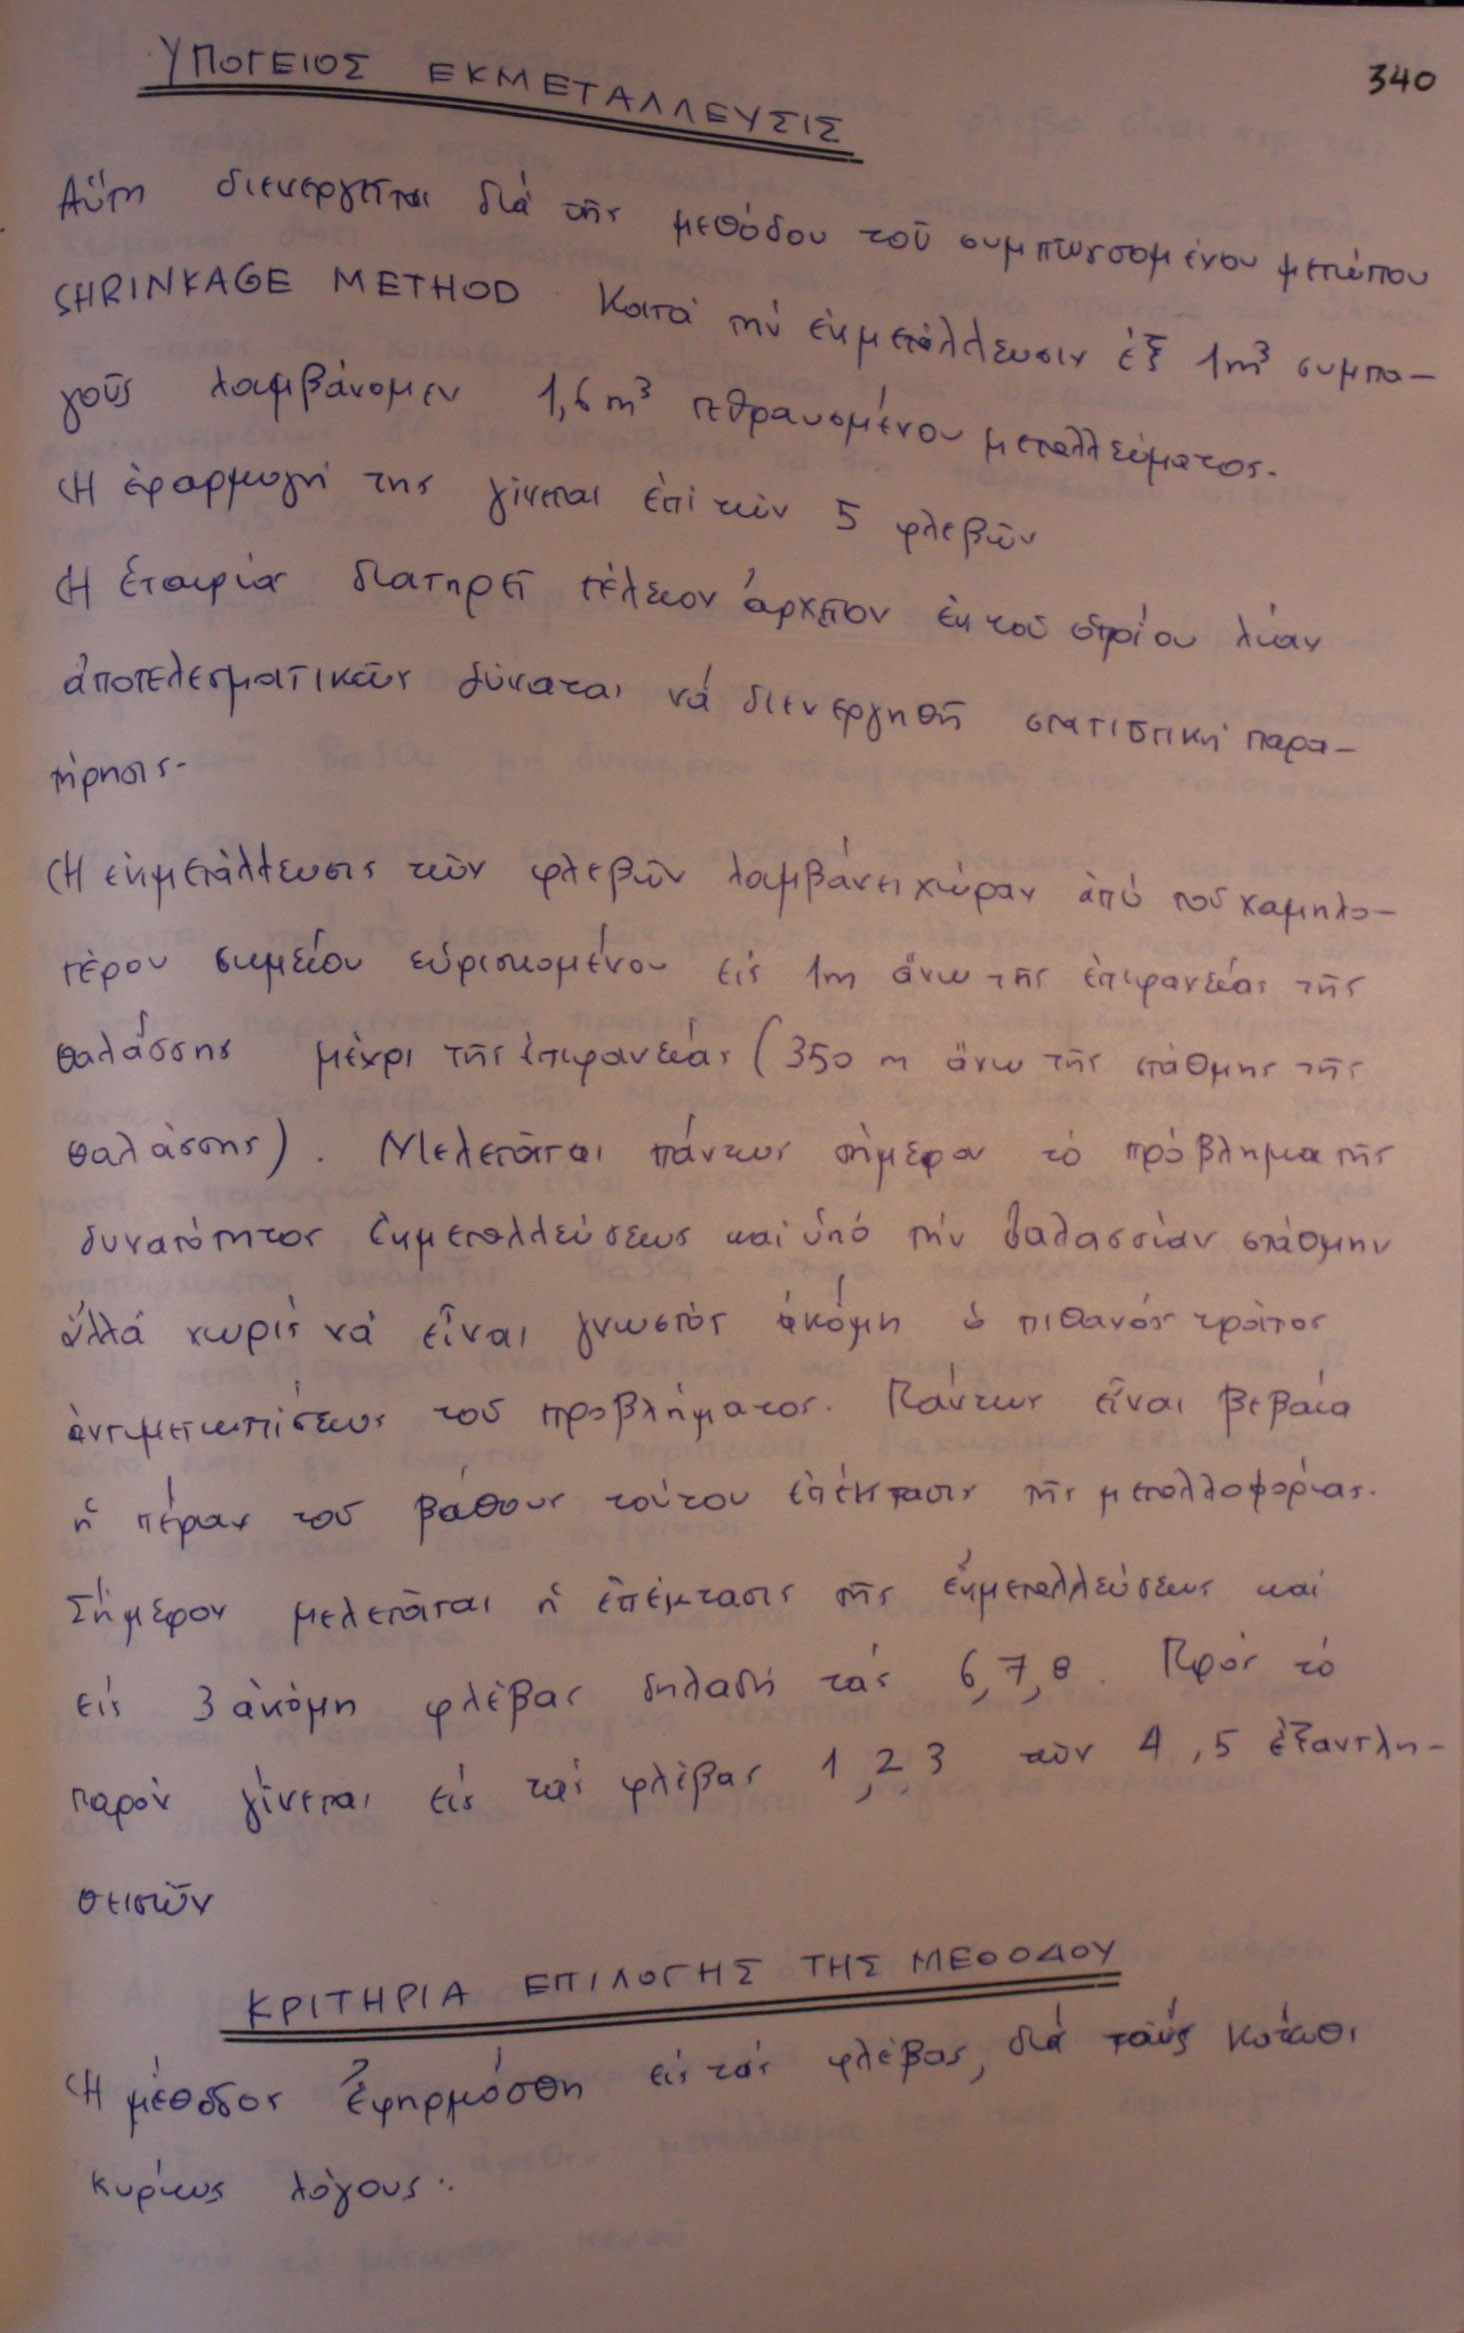 340
ΥΠΟΓΕΙΟΣ ΕΚΜΕΤΑΛΛΕΥΣΙΣ
Αὕτη διενεργεῖται διά τῆς μεθόδου τοῦ συμπτυσσομένου μετώπου
SHRINKAGE METHOD. Κατά τήν ἐκμετάλλευσιν ἐξ 1m³ συμπα-
γοῦς λαμβάνομεν 1,6 m³ τεθραυσμένου μεταλλεύματος.
Ἡ ἐφαρμογή της γίνεται ἐπί τῶν 5 φλεβῶν
Ἡ ἑταιρία διατηρεῖ τέλειον ἀρχεῖον ἐκ τοῦ ὁποίου λίαν
ἀποτελεσματικῶς δύναται νά διενεργηθῆ στατιστική παρα-
τήρησις.
Ἡ ἐκμετάλλευσις τῶν φλεβῶν λαμβάνει χώραν ἀπό τοῦ χαμηλο-
τέρου σημείου εὑρισκομένου εἰς 1m ἄνω τῆς ἐπιφανείας τῆς
θαλάσσης μέχρι τῆς ἐπιφανείας (350 m ἄνω τῆς στάθμης τῆς
θαλάσσης). Μελετᾶται πάντως σήμερον τό πρόβλημα τῆς
δυνατότητος ἐκμεταλλεύσεως καί ὑπό τήν θαλασσίαν στάθμην
ἀλλά χωρίς νά εἶναι γνωστός ἀκόμη ὁ πιθανός τρόπος
ἀντιμετωπίσεως τοῦ προβλήματος. Πάντως εἶναι βεβαία
ἡ πέραν τοῦ βάθους τούτου ἐπέκτασις τῆς μεταλλοφορίας.
Σήμερον μελετᾶται ἡ ἐπέκτασις τῆς ἐκμεταλλεύσεως καί
εἰς 3 ἀκόμη φλέβας δηλαδή τάς 6,7,8. Πρός τό
παρόν γίνεται εἰς τάς φλέβας 1,2,3 τῶν 4,5 ἐξαντλη-
θεισῶν
ΚΡΙΤΗΡΙΑ ΕΠΙΛΟΓΗΣ ΤΗΣ ΜΕΘΟΔΟΥ
Ἡ μέθοδος ἐφηρμόσθη εἰς τάς φλέβας, διά τούς κάτωθι
κυρίως λόγους: